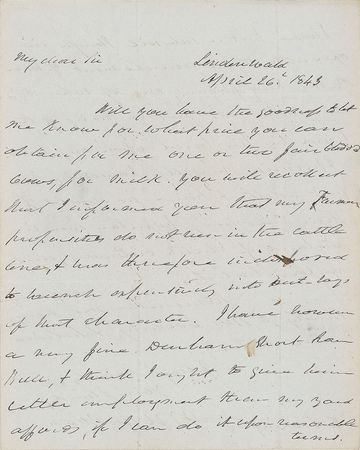 My dear Sir
Lindenwald
April 26. 1843
Will you have the goodness to let
me know for what price you can
obtain for me one or two fair blooded
Cows, for milk. You will recollect
that I informed you that my Farming
propensities do not run in the cattle
line, & was therefore indisposed
to branch expensively into out lays
of that character. I have however
a very fine Durham Short horn
Bull, & think I ought to give him
better employment than my yard
affords, if I can do it upon reasonable
terms.